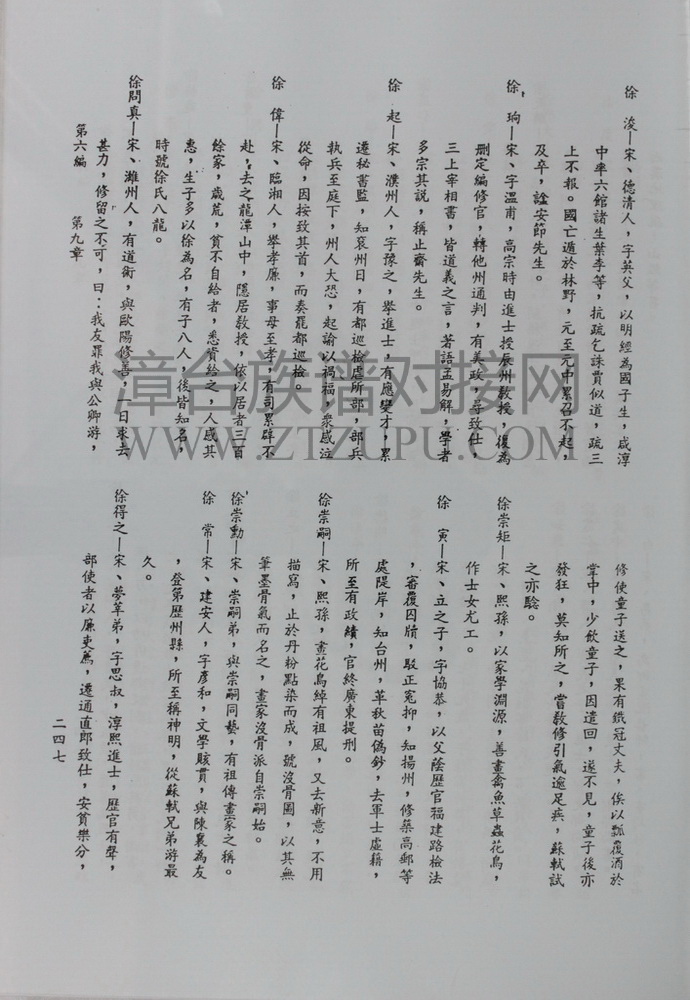 徐　浚—宋、德清人，字英父，以明經為國子生，咸淳
中率六館諸生葉李等，抗疏乞誅賈似道，疏三
上不報。國亡遁於林野，元至元中累召不起，
及卒，諡安節先生。
徐　珦—宋、字溫甫，高宗時由進士授辰州教授，復為
刪定編修官，轉他州通判，有美政，尋致仕
三上宰相書，皆道義之言，著語孟易解，學者
多宗其說，稱止齋先生。
徐　起—宋、濮州人，字豫之，舉進士，有應變才，累
遷秘書監，知袞州日，有都巡檢虐所部，部兵
執兵至庭下，州人大恐，起諭以禍福，衆感泣
從命，因按致其首，而奏罷都巡檢。
徐　偉—宋、臨湘人，擧孝廉，事母至孝，有司累辟不
赴，去之龍潭山中，隱居教授，依以居者三百
餘家，歲荒，貧不自給者，悉賞給之，人感其
惠，生子多以徐為名，有子八人，後皆知名，
時號徐氏八龍。
徐問真—宋、濰州人，有道術，與歐陽修善，一日求去
甚力，修留之不可，曰：我友罪我與公卿游，
第六編　　第九章
修使童子送之，果有鐵冠丈夫，俟以瓢覆酒於
掌中，少飲童子，因遣回，遂不見，童子後亦
發狂，莫知所之，嘗教修引氣逾足疾，蘇軾試
之亦驗。
徐崇矩—宋、熙孫，以家學淵源，善畫禽魚草蟲花鳥，
作士女尤工。
徐　寅—宋、立之子，字協恭，以父蔭歷官福建路檢法
，審覆囚牘，駁正冤抑，知揚州，修築高郵等
處隄岸，知台州，革秋苗偽鈔，去軍士虛籍，
所至有政績，官終廣東提刑。
徐崇嗣—宋、熙孫，畫花鳥綽有祖風，又去新意，不用
描寫，止於丹粉點染而成，號沒骨圖，以其無
筆墨骨氣而名之，畫家沒骨派自崇嗣始。
徐崇勳—宋、崇嗣弟，與崇嗣同藝，有祖傳畫家之稱。
徐　常—宋、建安人，字彥和，文學賅貫，與陳襄為友
，登第歷州縣，所至稱神明，從蘇軾兄弟游最
久。
徐得之—宋、夢莘弟，字思叔，淳熙進士，歷官有聲，
部使者以廉吏薦，遷通直郎致仕，安貧樂分，
二四七
漳台族谱对接网
WWW.ZTZUPU.COM